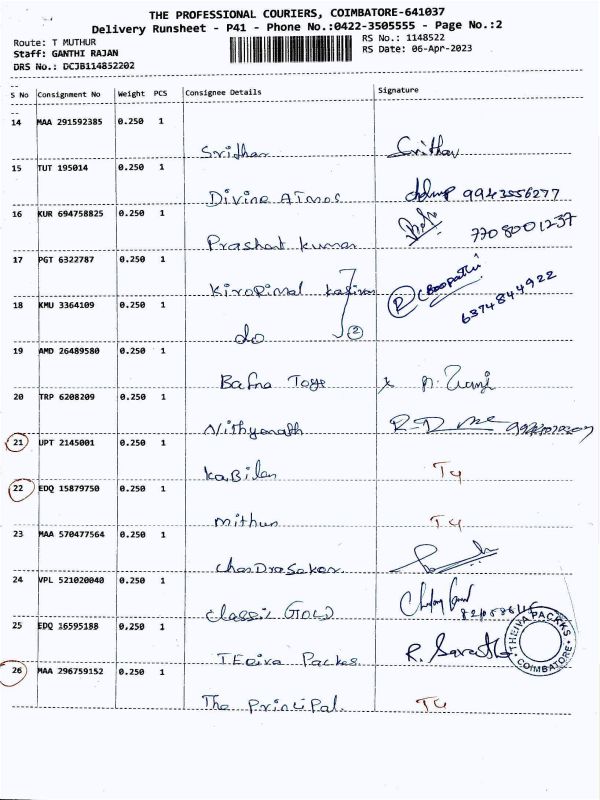 THE PROFESSIONAL COURIERS, COIMBATORE-641037
Delivery Runsheet - P41 - Phone No.:0422-3505555 - Page No.:2
Route: T MUTHUR
RS No.: 1148522
Staff: GANTHI RAJAN
RS Date: 06-Apr-2023
DRS No.: DCJB114852202
S No Consignment No Weight PCS Consignee Details Signature
14 MAA 291592385 0.250 1
Sridhar Srithar
15 TUT 195014 0.250 1
Divine ATmos 9943556277
16 KUR 694758825 0.250 1
Prashant kumar 7708001237
17 PGT 6322787 0.250 1
R (Boopathi
6374844922
18 KMU 3364109 0.250 1
do 2
19 AMD 26489580 0.250 1
Bafna Toys x
20 TRP 6208209 0.250 1
Nithyanath
21 UPT 2145001 0.250 1
KaBilan T4
22 EDQ 15879750 0.250 1
Mithun T4
23 MAA 570477564 0.250 1
ChanDraSekar
24 VPL 521020040 0.250 1
Classic GOLD
25 EDQ 16595188 0.250 1
TEeiva Packes R.
THEIVA PACKKS
COIMBATORE
26 MAA 296759152 0.250 1
The Principal. T4